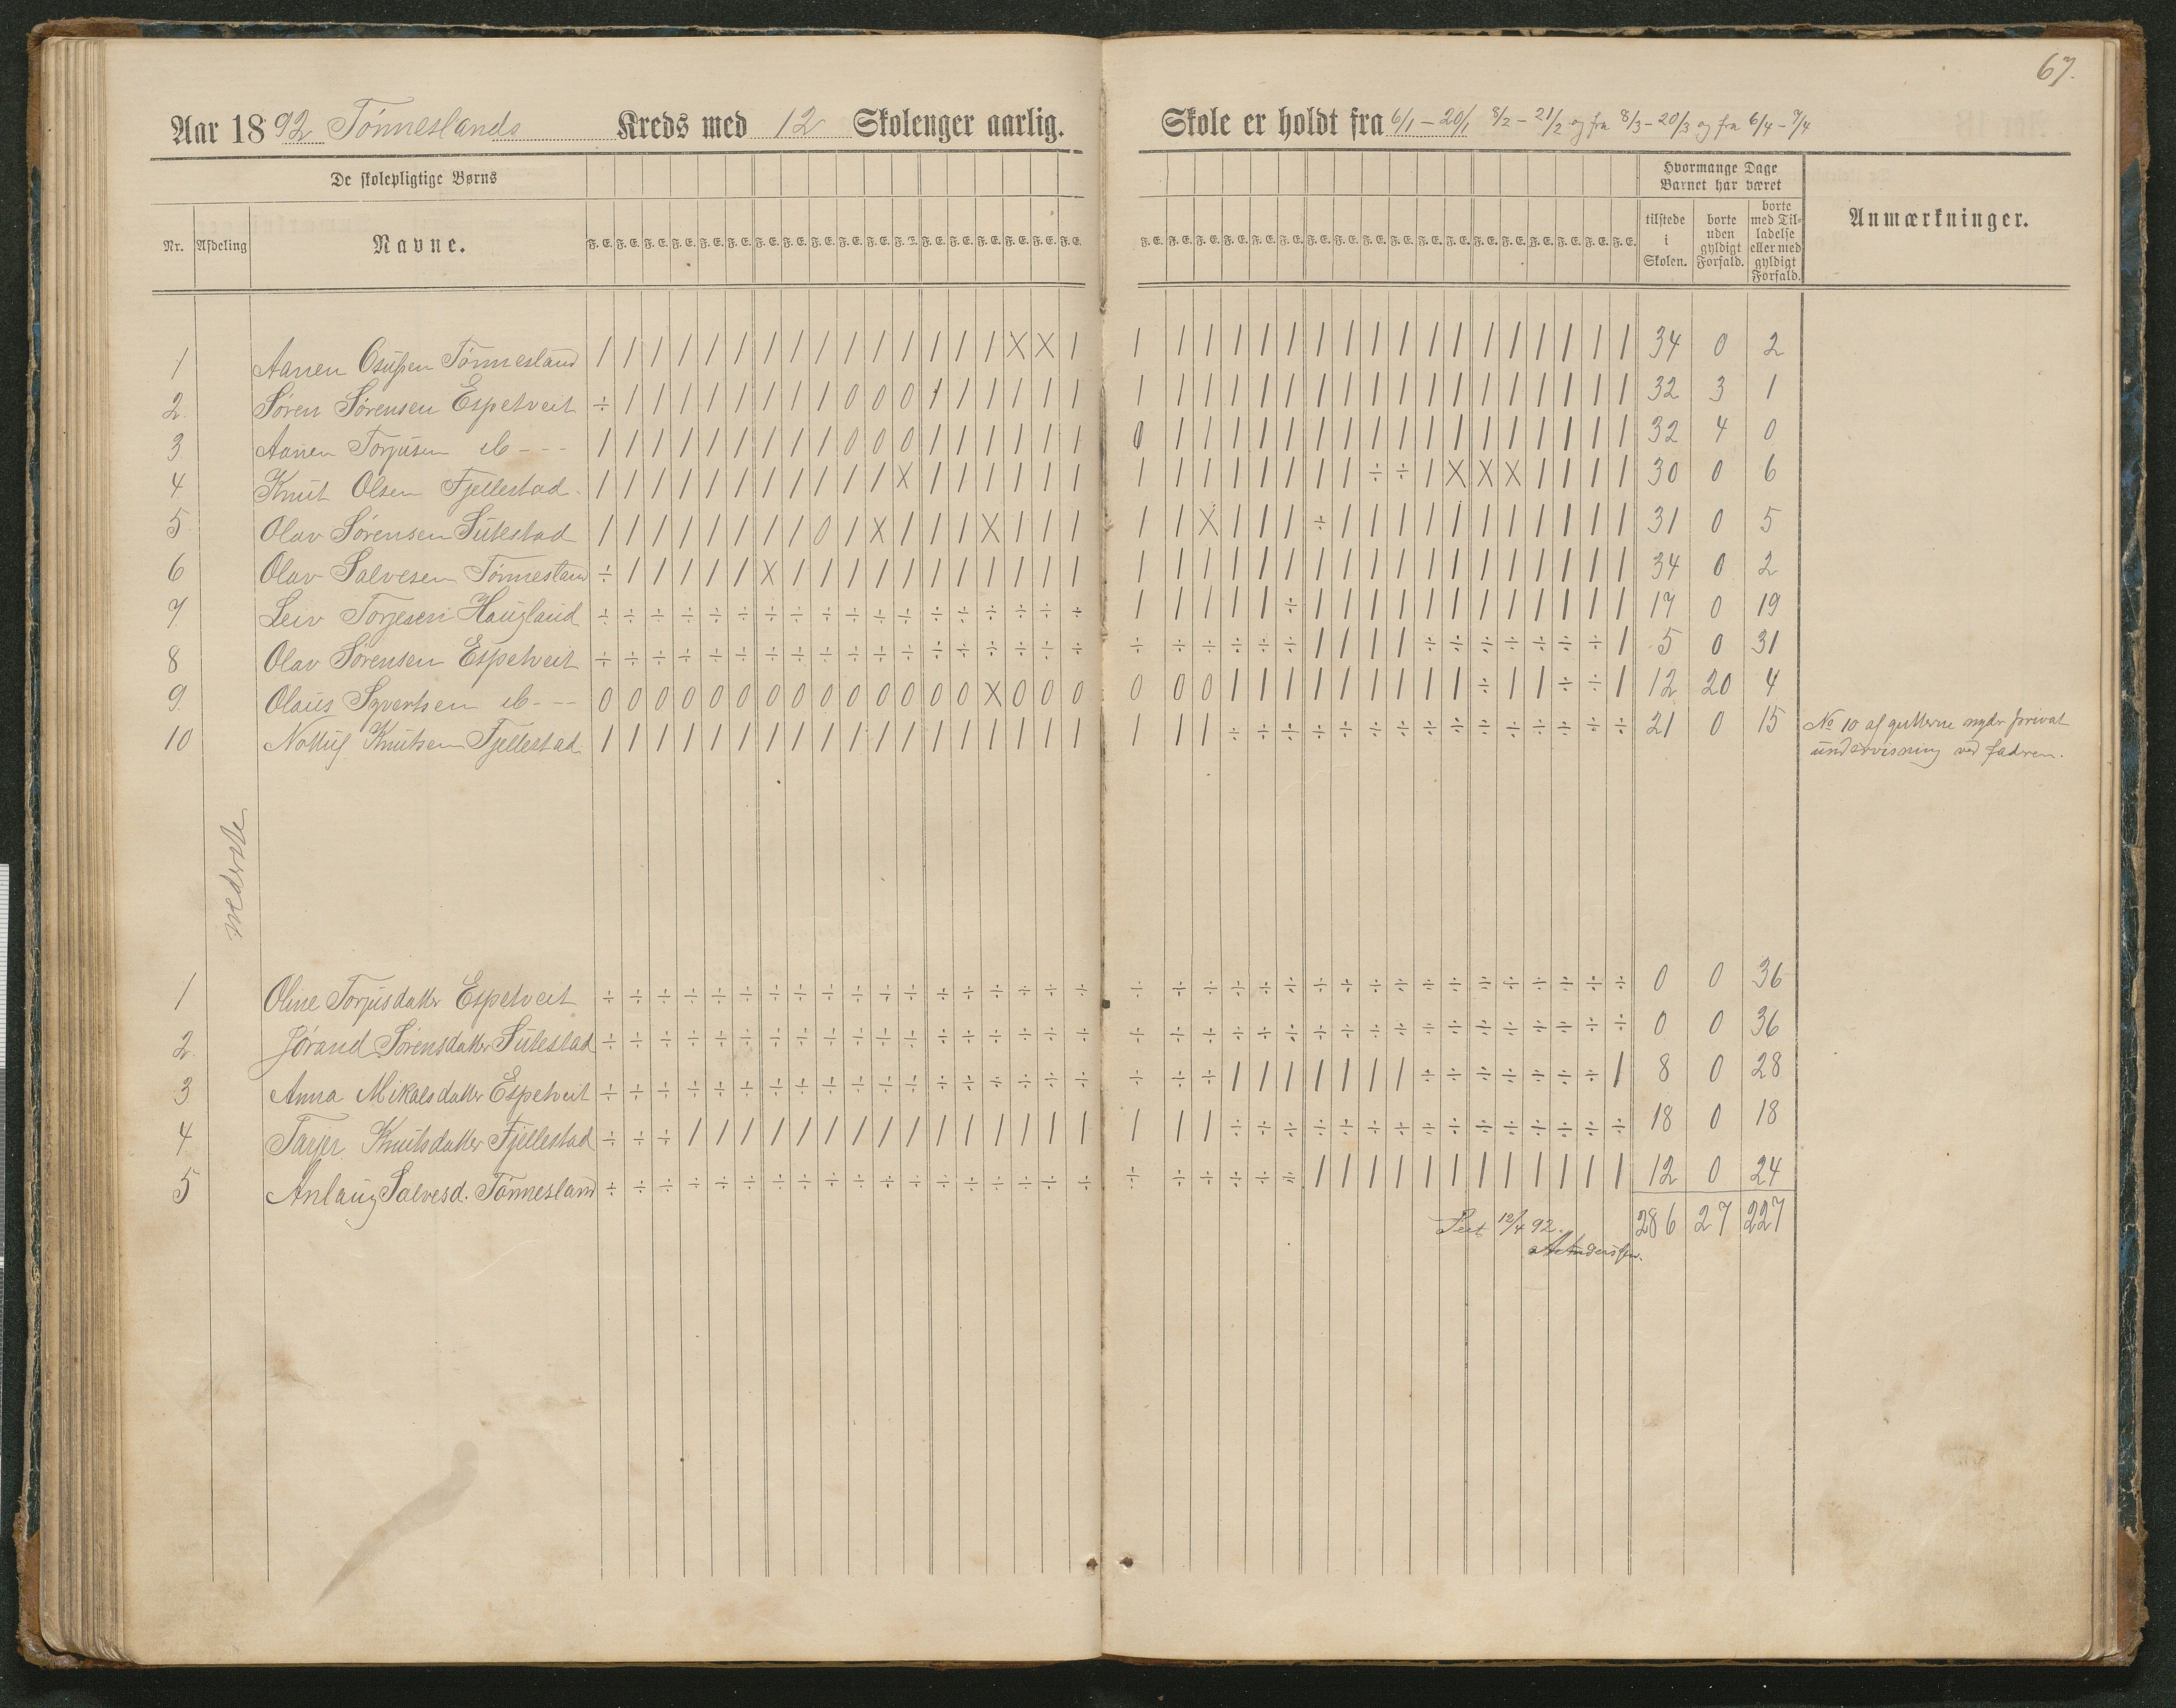 67.
Aar 1892 Tönneslands Kreds med 12 Skolenger aarlig. Skole er holdt fra 6/1 – 20/1 8/2 – 21/2 og fra 8/3 – 20/3 og fra 6/4 – 7/4
De skolepligtige Børns
Hvormange Dage
Barnet har været
Nr. Afdeling Navne. F. E. F. E. F. E. F. E. F. E. F. E. F. E. F. E. F. E. F. E. F. E. F. E. F. E. F. E. F. E. F. E. F. E. F. E.
F. E. F. E. F. E. F. E. F. E. F. E. F. E. F. E. F. E. F. E. F. E. F. E. F. E. F. E. F. E. F. E. F. E. F. E.
tilstede
i
Skolen.
borte
uden
gyldigt
Forfald.
borte
med Til-
ladelse
eller med
gyldigt
Forfald.
Anmærkninger.
1 Aanen Osufsen Tönnesland / / / / / / / / / / / / / / / X X / / / / / / / / / / / / / / / / / / / 34 0 2
2. Sören Sörensen Espetveit ÷ / / / / / / / / 0 0 0 / / / / / / / / / / / / / / / / / / / / / / / / 32 3 1
3. Aanen Torjusen ib - - - / / / / / / / / / 0 0 0 / / / / / / 0 / / / / / / / / / / / / / / / / / 32 4 0
4. Knut Olsen Fjellestad. / / / / / / / / / / / X / / / / / / / / / / / / / / ÷ ÷ / X X X / / / / 30 0 6
5. Olav Sörensen Sutestad / / / / / / / / 0 / X / / / X / / / / / X / / / ÷ / / / / / / / / / / / 31 0 5
6 Olav Salvesen Tönnesland ÷ / / / / / X / / / / / / / / / / / / / / / / / / / / / / / / / / / / / 34 0 2
7 Leiv Torjesen Haugland ÷ ÷ ÷ ÷ ÷ ÷ ÷ ÷ ÷ ÷ ÷ ÷ ÷ ÷ ÷ ÷ ÷ ÷ / / / / / ÷ / / / / / / / / / / / / 17 0 19
8 Olav Sörensen Espetveit ÷ ÷ ÷ ÷ ÷ ÷ ÷ ÷ ÷ ÷ ÷ ÷ ÷ ÷ ÷ ÷ ÷ ÷ ÷ ÷ ÷ ÷ ÷ ÷ / / / / ÷ ÷ ÷ ÷ ÷ ÷ ÷ / 5 0 31
9. Olaus Syvertsen ib - - - 0 0 0 0 0 0 0 0 0 0 0 0 0 0 X 0 0 0 0 0 0 / / / / / / / / / ÷ / / ÷ ÷ / 12 20 4
10 Nottuf Knutsen Fjellestad. / / / / / / / / / / / / / / / / / / / / / ÷ ÷ ÷ ÷ ÷ ÷ ÷ ÷ ÷ ÷ ÷ ÷ ÷ ÷ ÷ 21 0 15 No 10 af gutterne nyder privat
undervisning ved faderen.
nederste
1 Oline Torjusdatter Espetveit ÷ ÷ ÷ ÷ ÷ ÷ ÷ ÷ ÷ ÷ ÷ ÷ ÷ ÷ ÷ ÷ ÷ ÷ ÷ ÷ ÷ ÷ ÷ ÷ ÷ ÷ ÷ ÷ ÷ ÷ ÷ ÷ ÷ ÷ ÷ ÷ 0 0 36
2. Jörand Sörensdatter Sutestad ÷ ÷ ÷ ÷ ÷ ÷ ÷ ÷ ÷ ÷ ÷ ÷ ÷ ÷ ÷ ÷ ÷ ÷ ÷ ÷ ÷ ÷ ÷ ÷ ÷ ÷ ÷ ÷ ÷ ÷ ÷ ÷ ÷ ÷ ÷ ÷ 0 0 36
3 Anna Mikalsdatter Espetveit ÷ ÷ ÷ ÷ ÷ ÷ ÷ ÷ ÷ ÷ ÷ ÷ ÷ ÷ ÷ ÷ ÷ ÷ ÷ ÷ ÷ / / / / / / / ÷ ÷ ÷ ÷ ÷ ÷ ÷ / 8 0 28
4 Tarjer Knutsdatter Fjellestad ÷ ÷ ÷ / / / / / / / / / / / / / / / / / / ÷ ÷ ÷ ÷ ÷ ÷ ÷ ÷ ÷ ÷ ÷ ÷ ÷ ÷ ÷ 18 0 18
5 Anlaug Salvesd. Tönnesland ÷ ÷ ÷ ÷ ÷ ÷ ÷ ÷ ÷ ÷ ÷ ÷ ÷ ÷ ÷ ÷ ÷ ÷ ÷ ÷ ÷ ÷ ÷ ÷ / / / / / / / / / / / / 12 0 24
Seet 12/4 92. 286 27 227
Anderssen.